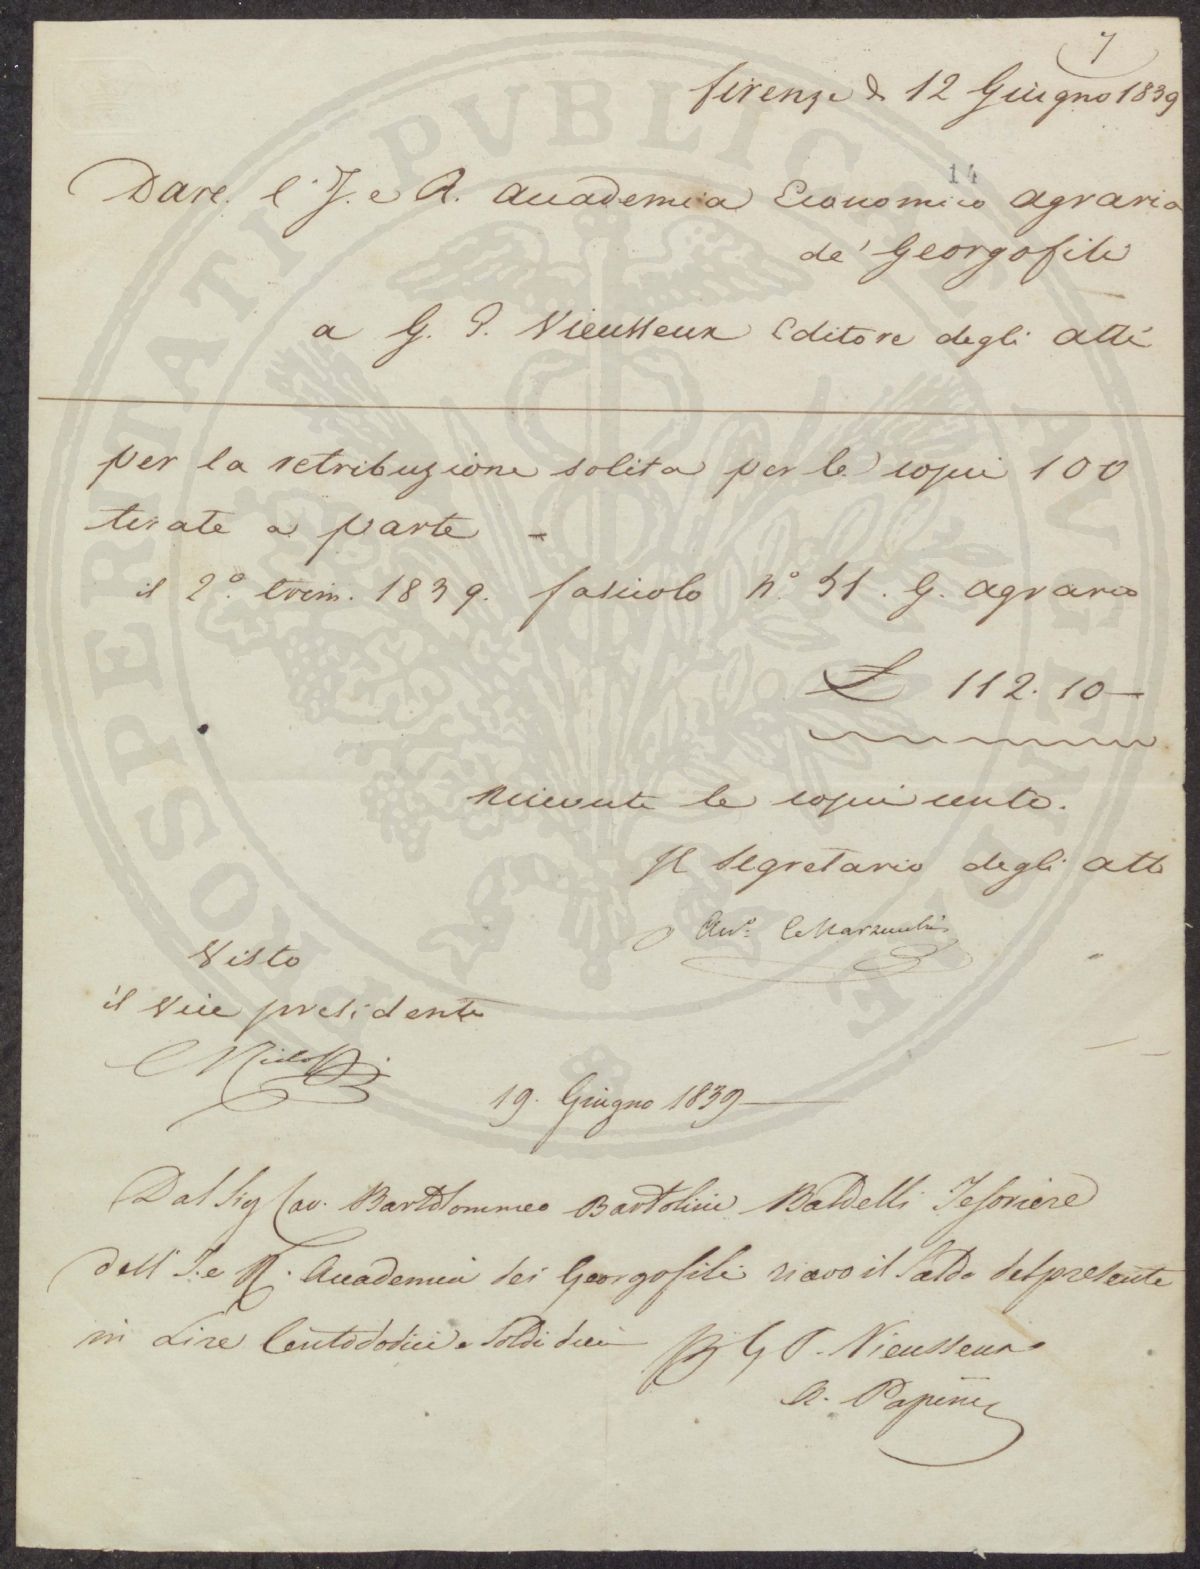 7
Firenze d 12 Giugno 1839
14
Dare l'I. e R. Accademia Economico Agraria
de' Georgofili
a G. P. Vieusseux Editore degli Atti
per la retribuzione solita per le copie 100
tirate a parte -
il 2º. trim. 1839. fascicolo Nº 51. G. Agrario
£ 112. 10 —
Ricevute le copie cento.
Il Segretario degli Atti
Visto
il Vice presidente
19. Giugno 1839 —
Dal Sig Cav. Bartolommeo Bartolini Baldelli Tesoriere
dell' I. e R. Accademia dei Georgofili ricevo il Saldo del presente
in Lire Centododici e Soldi dieci
G P. Vieusseux
A. Papini
PROSPERITATI PVBLICAE AVGENDAE